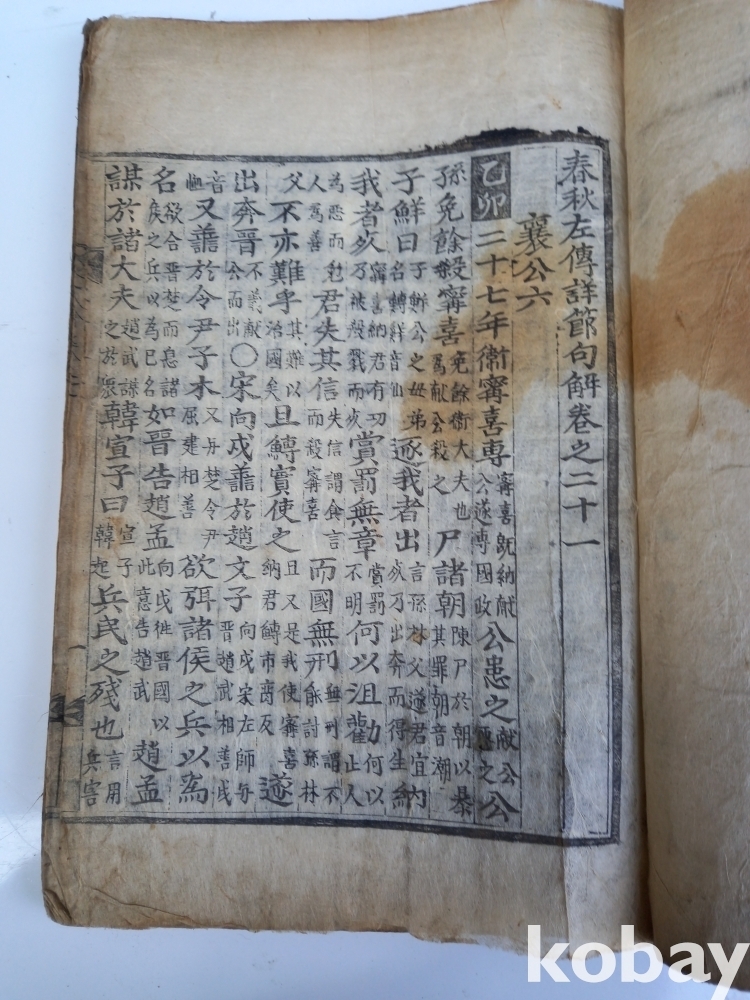 春秋左傳詳節句解卷之二十一
襄公六
乙卯二十七年衛寗喜專寗喜旣納献公遂專國政公患之献公惡之公
孫免餘殺寗喜免餘衛大夫也爲献公殺之尸諸朝陳尸於朝以暴其罪朝音潮
子鮮曰子鮮公之母弟名轉鮮音仙逐我者出言孫林父逐君宜納矣乃出奔而得生納
我者死寗喜納君有功乃被殺戮而死賞罰無章賞罰不明何以沮勸何以止人
爲惡而勉人爲善君失其信失信謂食言而殺寗喜而國無刑無刑謂不能討孫林
父不亦難乎其難以治國矣且鱄實使之且又是我使寗喜納君鱄市臠反遂
出奔晉不義献公而出○宋向戌善於趙文子向戌宋左師与晉趙武相善戌
音恤又善於令尹子木又与楚令尹屈建相善欲弭諸侯之兵以爲
名欲合晉楚而息諸侯之兵以爲已名如晉告趙孟向戌徃晉國以此意告趙武趙孟
謀於諸大夫趙武謀之於衆韓宣子曰宣子韓起兵民之残也言用兵害
kobay